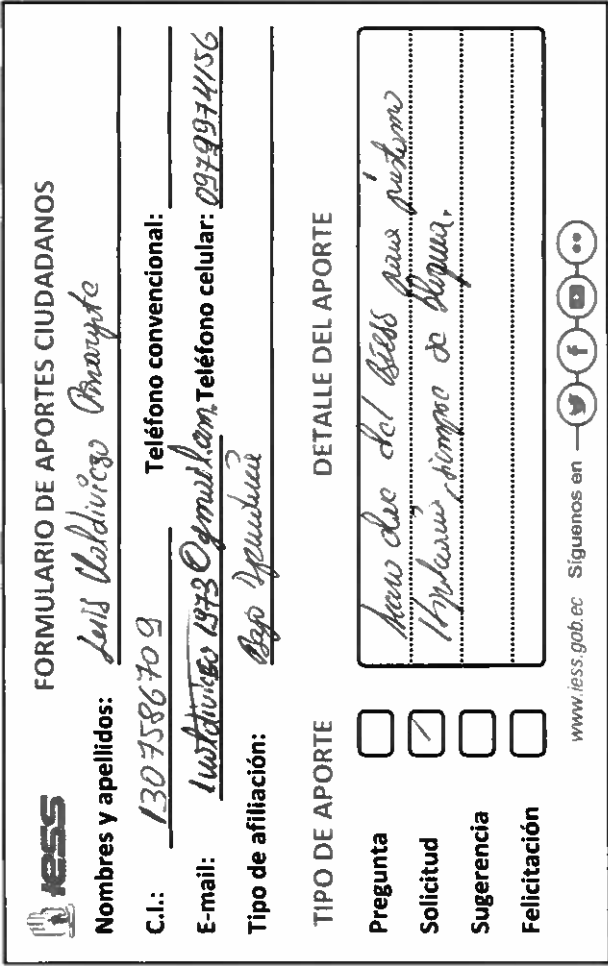 iess
FORMULARIO DE APORTES CIUDADANOS
Nombres y apellidos: Luis Valdiviezo
C.I.: 130758670 9 Teléfono convencional:
E-mail: lvaldiviezo1973@gmail.com Teléfono celular: 0979974156
Tipo de afiliación: Bajo
TIPO DE APORTE
DETALLE DEL APORTE
Pregunta
Solicitud
Sugerencia
Felicitación
del Biess para préstamo
siempre se bloquea.
www.iess.gob.ec Síguenos en